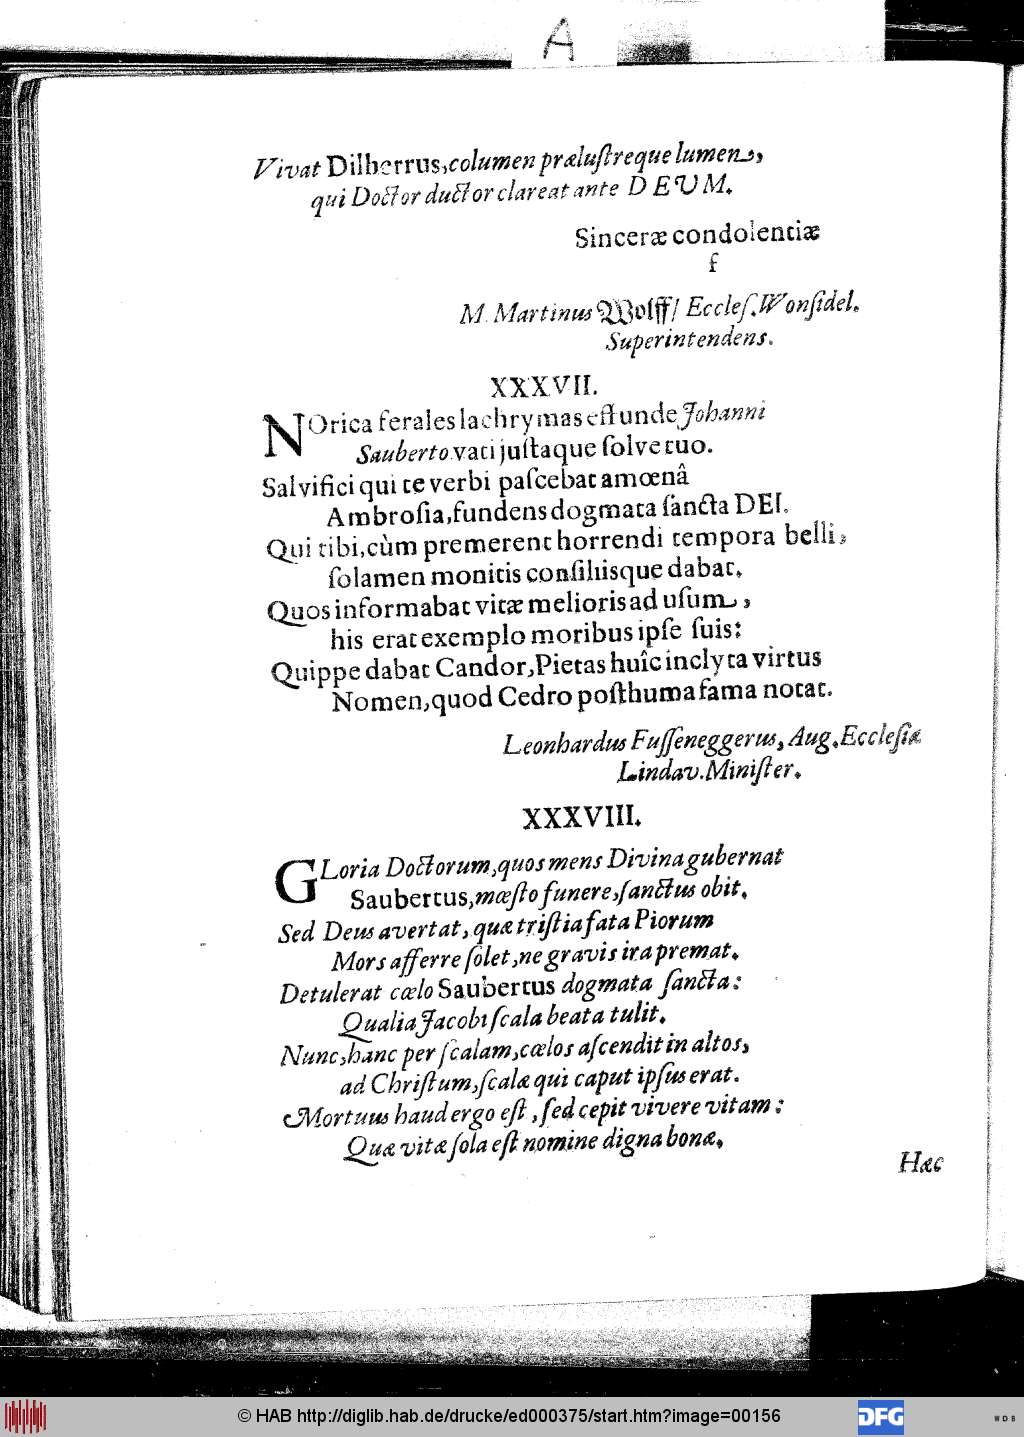 A
Vivat Dilherrus, columen præluſtreque lumen,
qui Doctor ductor clareat ante DEUM.
Sinceræ condolentiæ
f
M. Martinus Wolff/ Eccleſ. Wonſidel.
Superintendens.
XXXVII.
NOrica ferales lachrymas effunde Johanni
Sauberto vati juſtaque ſolve tuo.
Salvifici qui te verbi paſcebat amœnâ
Ambroſia, fundens dogmata ſancta DEI.
Qui tibi, cùm premerent horrendi tempora belli,
ſolamen monitis conſiliisque dabat.
Quos informabat vitæ melioris ad uſum,
his erat exemplo moribus ipſe ſuis:
Quippe dabat Candor, Pietas huîc inclyta virtus
Nomen, quod Cedro poſthuma fama notat.
Leonhardus Fuſſeneggerus, Aug. Eccleſiæ
Lindav. Miniſter.
XXXVIII.
GLoria Doctorum, quos mens Divina gubernat
Saubertus, mœſto funere, ſanctus obit.
Sed Deus avertat, quæ triſtia fata Piorum
Mors afferre ſolet, ne gravis ira premat.
Detulerat cœlo Saubertus dogmata ſancta:
Qualia Jacobi ſcala beata tulit.
Nunc, hanc per ſcalam, cœlos aſcendit in altos,
ad Chriſtum, ſcalæ qui caput ipſus erat.
Mortuus haud ergo eſt, ſed cepit vivere vitam:
Quæ vitæ ſola eſt nomine digna bonæ.
Hæc
© HAB http://diglib.hab.de/drucke/ed000375/start.htm?image=00156
DFG
WDB